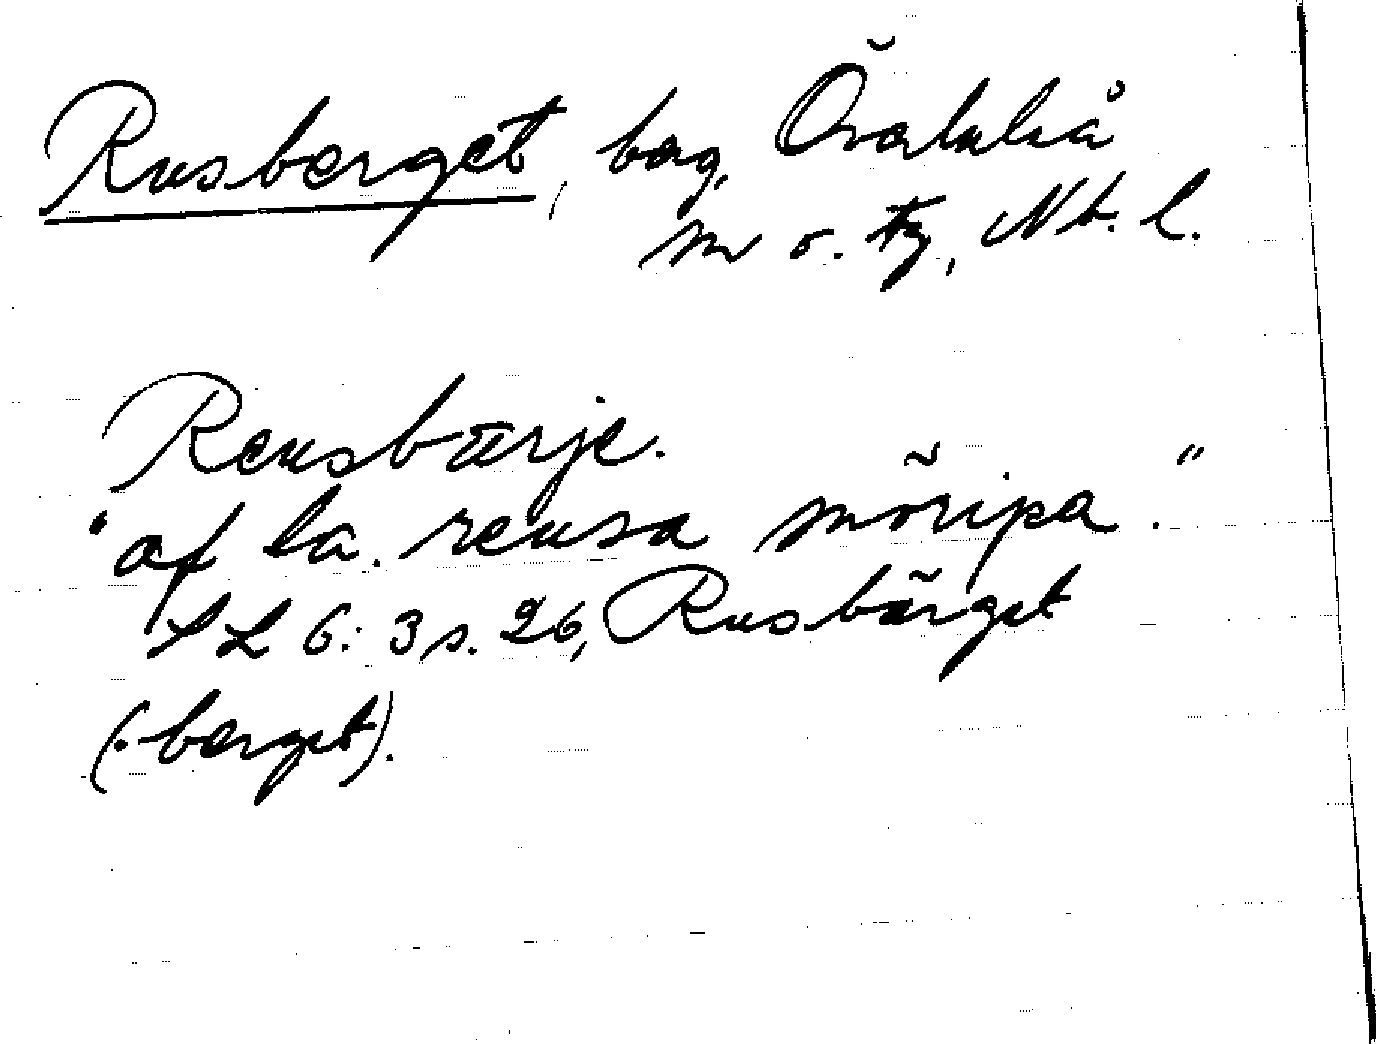 Rusberget, beg, Övaluleå
m o. fg, Nb. l.
Reusbärje.
"af la. reusa möripa."
SL 6:3 s. 26, Rusbärget
(-berget).